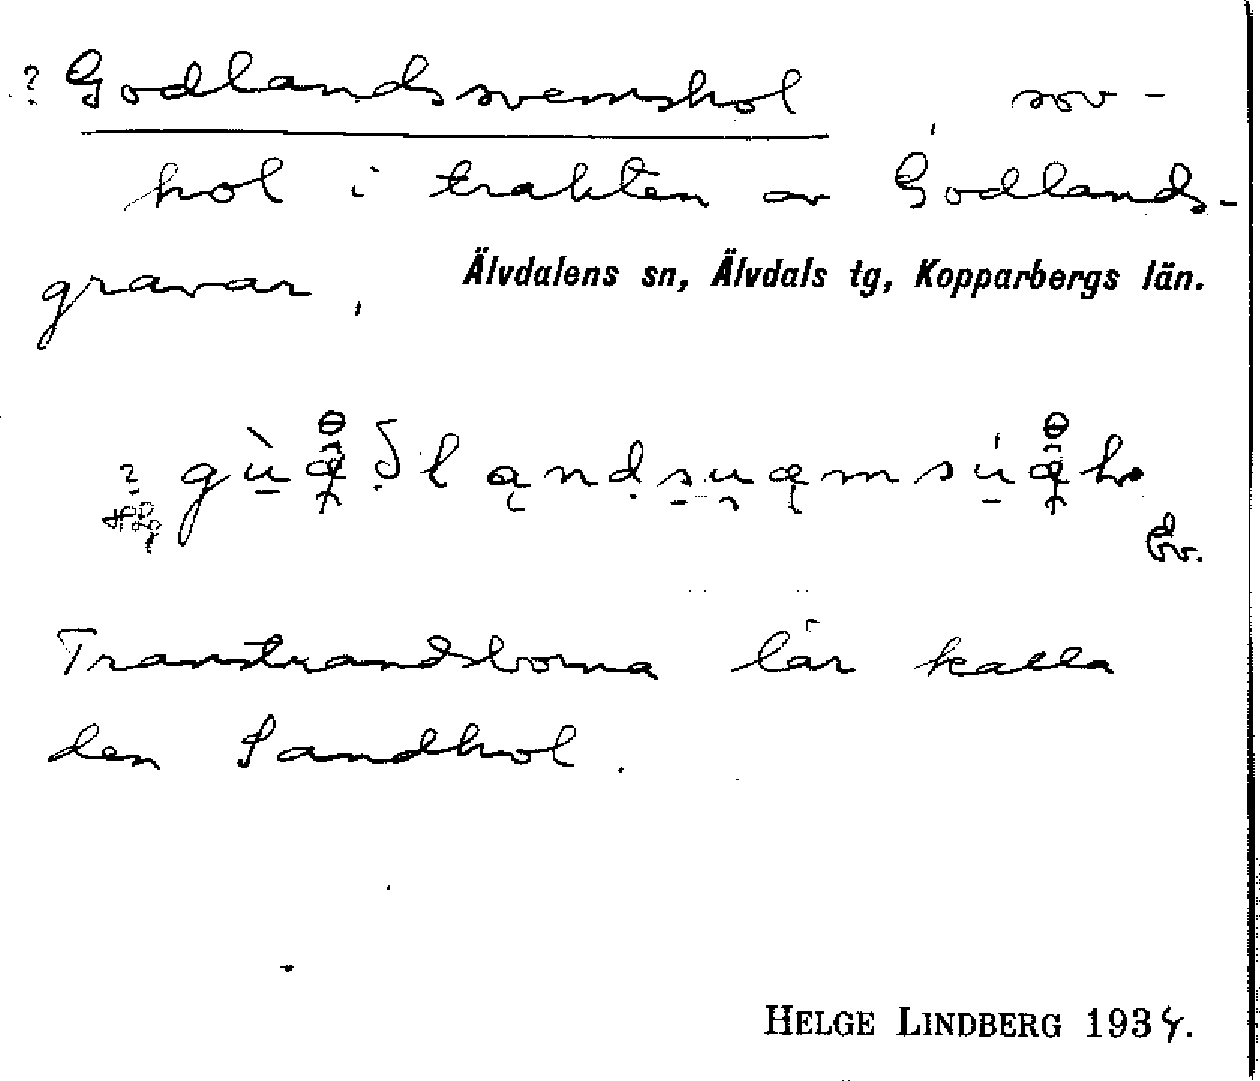 ? Godlandssvemshol sov-
hol i trakten av Godlands-
gravar, Älvdalens sn, Älvdals tg, Kopparbergs län.
Transtrandsborna lär kalla
den Sandhol.
HELGE LINDBERG 1934.